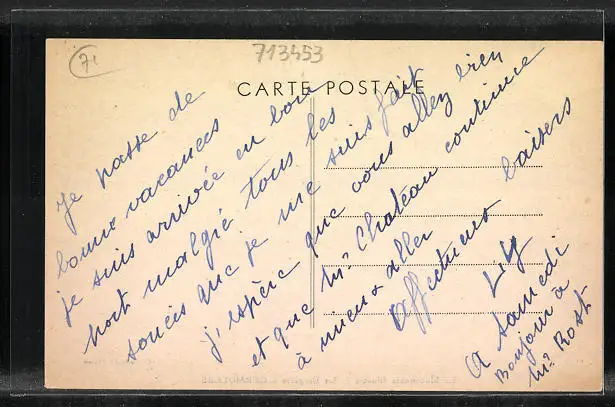 71
713453
CARTE POSTALE
Je passe de
bonne vacances
je suis arrivée en bon
port malgré tous les
soucis que je me suis fait
j'espère que vous allez bien
et que Mr Chateau continue
à mieux aller
Affectueux baisers
Lily
A samedi
Bonjour à
Mr Rost